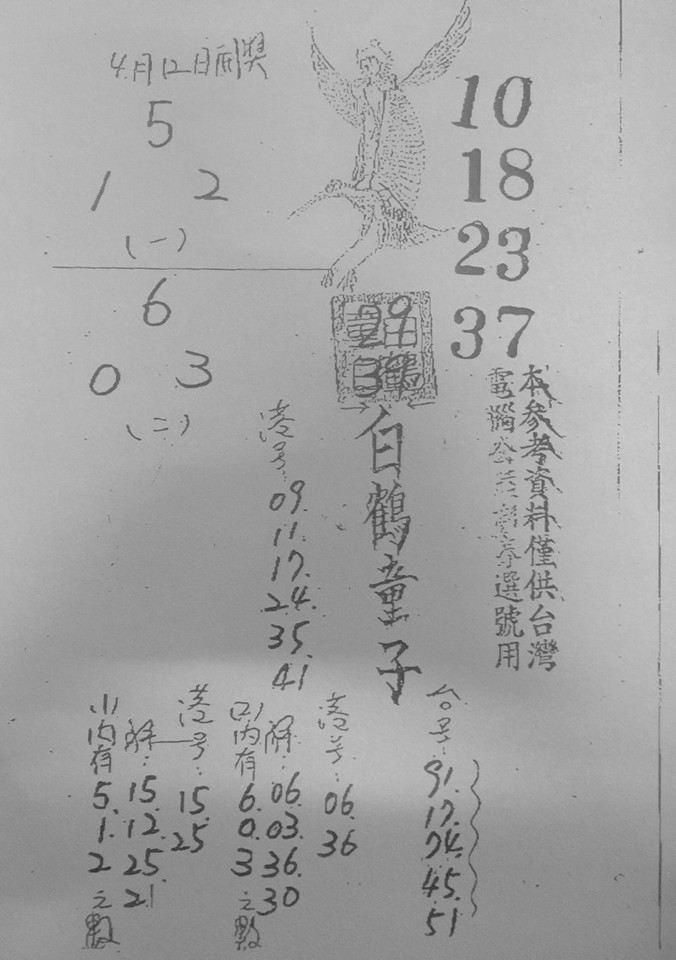 4月12日開獎
5
1 2
(一)
6
0 3
(二)
10
18
23
37
29
39
白鶴童子
本參考資料僅供台灣
電腦公益彩券選號用
港号:
09.
11.
17.
24.
35.
41
台号:
91.
17.
74.
45.
51
港号:
06
36
解:
06.
03.
36.
30
(2)內有
6.
0.
3
之數
港号:
15
25
解:
15.
12.
25
21
(1)內有
5.
1.
2
之數